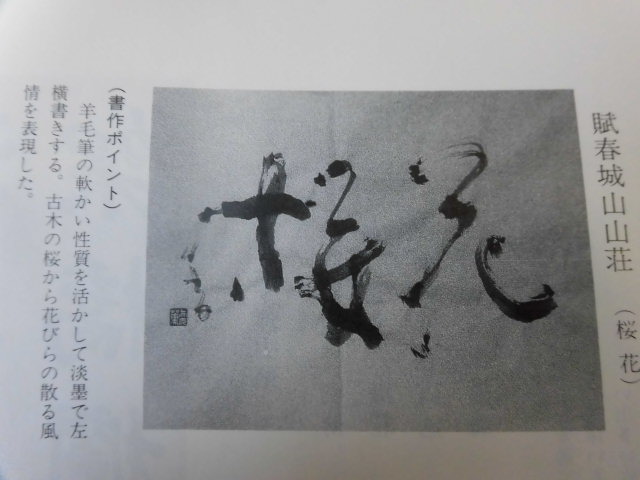 賦春城山山荘 (桜花)
桜花
(書作ポイント)
羊毛筆の軟かい性質を活かして淡墨で左
横書きする。古木の桜から花びらの散る風
情を表現した。